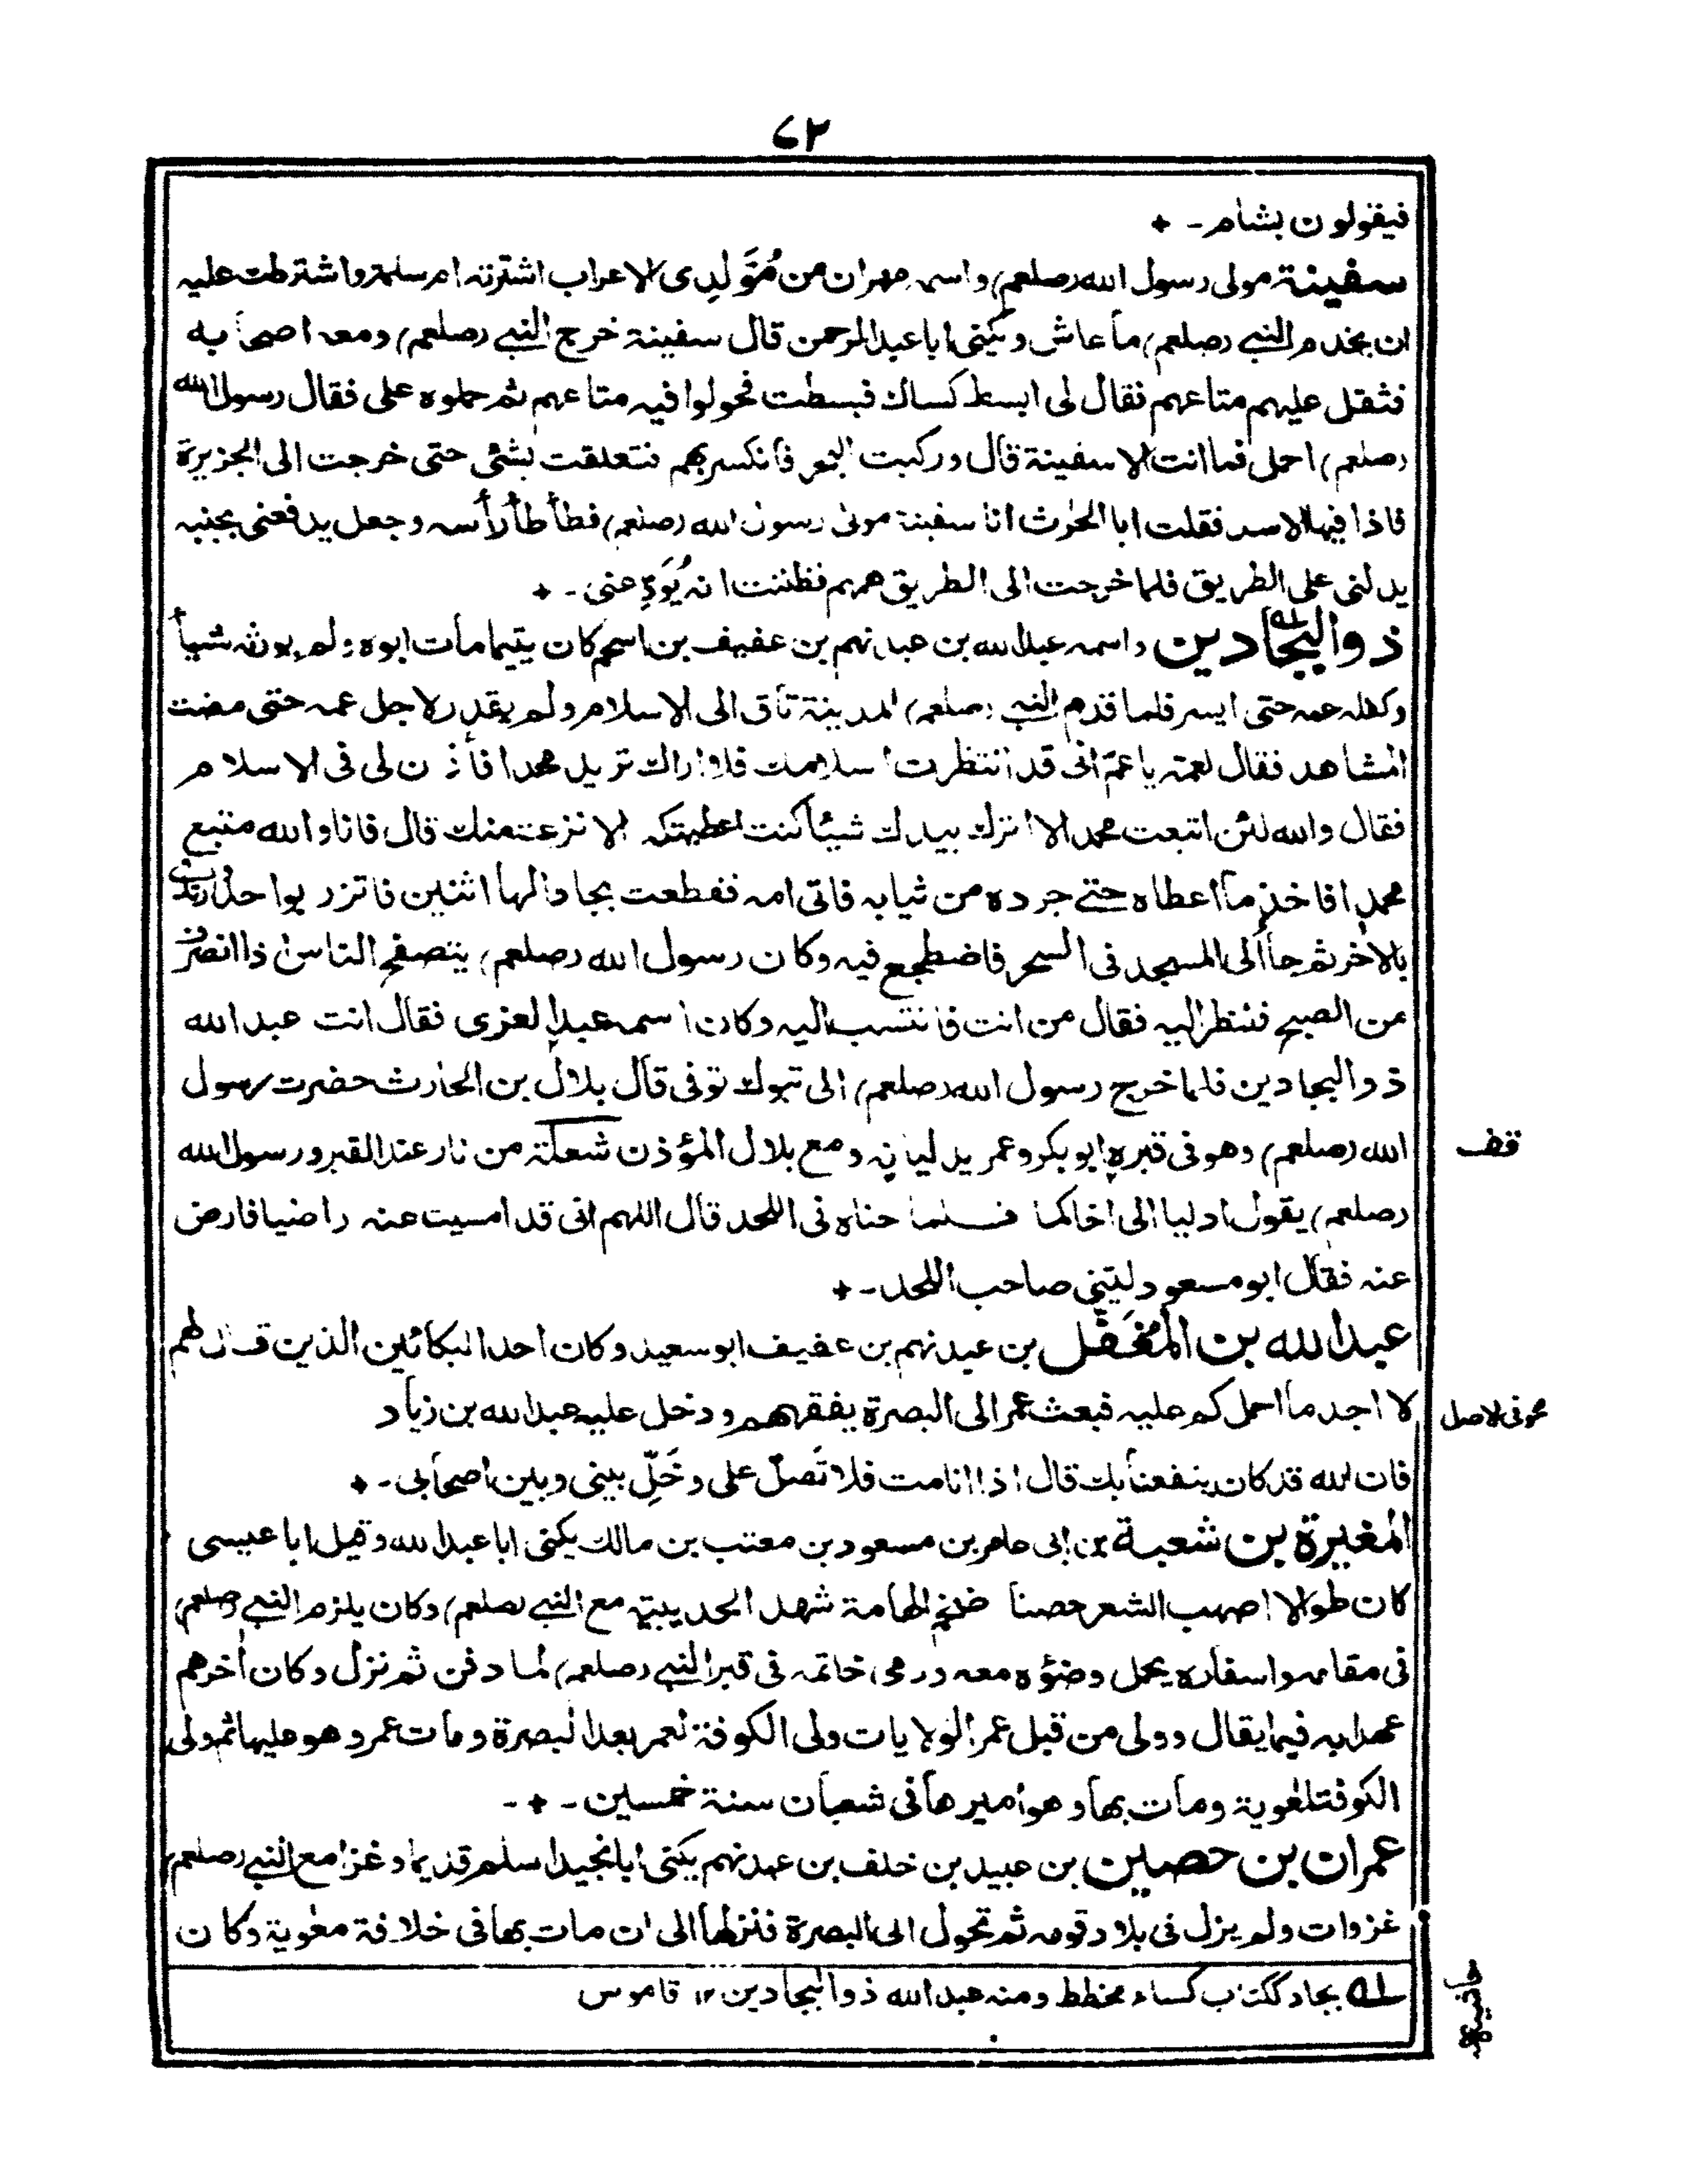 ٦٢
فيقولون بشام -
سفينة مولى رسول الله (صلعم) واسمه مهران من مُتَوَلِدِى الاعراب اشترته ام سلمة واشترطت عليه
ان يخدم النبي (صلعم) ما عاش ويكنى ابا عبد الرحمن قال سفينة خرج النبي (صلعم) ومعه اصحابه
فثقل عليهم متاعهم فقال لى ابسط كساك فبسطت فحولوا فيه متاعهم ثم حملوه على فقال رسول الله
(صلعم) احمل فما انت الا سفينة قال وركبت البحر فانكسر بهم فتعلقت بشئى حتى خرجت الى الجزيرة
فاذا فيها الاسد فقلت ابا الحرث انا سفينة مولى رسول الله (صلعم) فطأطأ رأسه وجعل يدفعنى بجنبه
يدلنى على الطريق فلما خرجت الى الطريق همهم فظننت انه يُوَدِّعنى -
ذو البجادين واسمه عبد الله بن عبد نهم بن عفيف بن اسحم كان يتيما مات ابوه ولم يورثه شيأ
وكفله عمه حتى ايسر فلما قدم النبي (صلعم) المدينة تاق الى الاسلام ولم يقدر لاجل عمه حتى مضت
المشاهد فقال لعمه يا عم انى قد انتظرت اسلامك فلا اراك تريد محمدا فأذن لى فى الاسلام
فقال والله لئن اتبعت محمدا لا اترك بيدك شيئا كنت اعطيتكه الا نزعته منك قال فانا والله متبع
محمدا فاخذ ما اعطاه حتى جرده من ثيابه فاتى امه فقطعت بجادا لها اثنين فاتزر بواحد وارتدى
بالاخر ثم جاء الى المسجد فى السحر فاضطجع فيه وكان رسول الله (صلعم) يتصفح الناس اذا انصرف
من الصبح فنظر اليه فقال من انت فانتسب اليه وكان اسمه عبد العزى فقال انت عبد الله
ذو البجادين فلما خرج رسول الله (صلعم) الى تبوك توفى قال بلال بن الحارث حضرت رسول
الله (صلعم) وهو فى قبره وابو بكر وعمر يدليانه ومع بلال المؤذن شعلة من نار عند القبر ورسول الله
قف
(صلعم) يقول ادليا الى اخاكما فلما حناه فى اللحد قال اللهم انى قد امسيت عنه راضيا فارض
عنه فقال ابو مسعود ليتنى صاحب اللحد -
عبد الله بن المُغَفَّل بن عبد نهم بن عفيف ابو سعيد وكان احد البكائين الذين قال لهم
لا اجد ما احملكم عليه فبعث عمر الى البصرة يفقههم ودخل عليه عبد الله بن زياد
محو فى الاصل
فان الله قد كان ينفعنا بك قال اذا انا مت فلا تَصلّ على وخَلِّ بينى وبين اصحابى -
المغيرة بن شعبة بن ابى عامر بن مسعود بن معتب بن مالك يكنى ابا عبد الله وقيل ابا عيسى
كان طوالا اصهب الشعر حصنا ضخم الهامة شهد الحديبية مع النبي (صلعم) وكان يلزم النبي (صلعم)
فى مقامه واسفاره يحمل وضؤه معه ورمى خاتمه فى قبر النبي (صلعم) لما دفن ثم نزل وكان اخرهم
عهدا به فيما يقال وولى من قبل عمر الولايات ولى الكوفة لعمر بعد البصرة ومات عمر وهو عليها ثم ولى
الكوفة لمعوية ومات بها وهو اميرها فى شعبان سنة خمسين -
عمران بن حصين بن عبيد بن خلف بن عبد نهم يكنى ابا نجيد اسلم قديما وغزا مع النبي (صلعم)
غزوات ولم يزل فى بلاد قومه ثم تحول الى البصرة فنزلها الى ان مات بها فى خلافة معوية وكان
له بجاد ككتاب كساء مخطط ومنه عبد الله ذو البجادين ١٢ قاموس
حاشيه